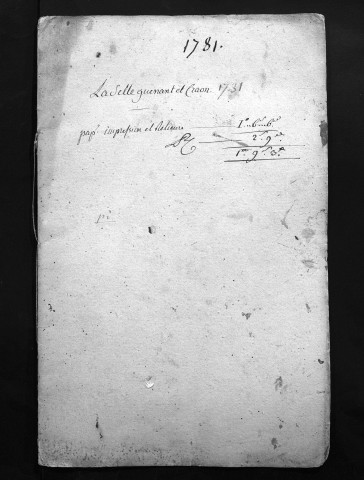 1781.
La Selle guenant et Civray. 1781
pap.r impression et Relieure 1.lt 6.s 6.d
2.s 9.d
1.lt 9.s 3.d